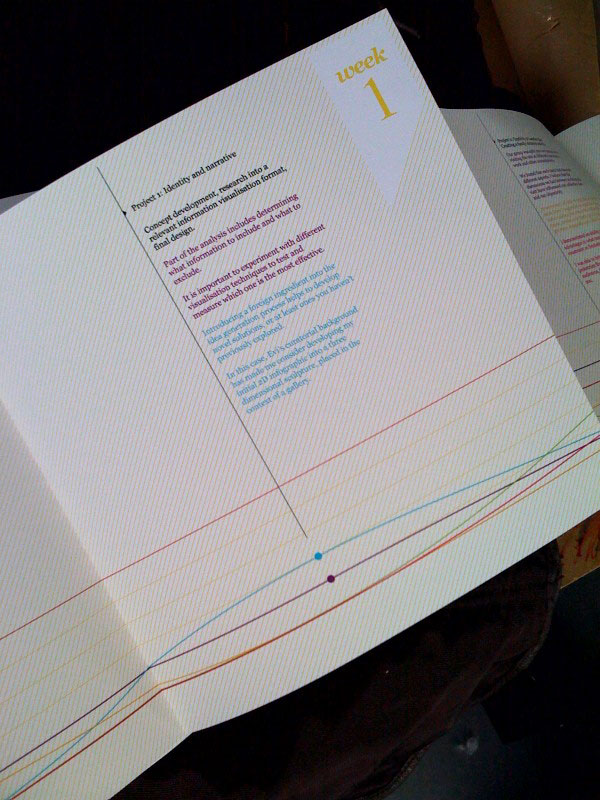 week
1
Project 1: Identity and narrative
Concept development, research into a
relevant information visualisation format,
final design.
Part of the analysis includes determining
what information to include and what to
exclude.
It is important to experiment with different
visualisation techniques to test and
measure which one is the most effective.
Introducing a foreign ingredient into the
idea generation process helps to develop
novel solutions, or at least ones you haven't
previously explored.
In this case, Evi's curatorial background
has made me consider developing my
initial 2D infographic into a three
dimensional sculpture, placed in the
context of a gallery.